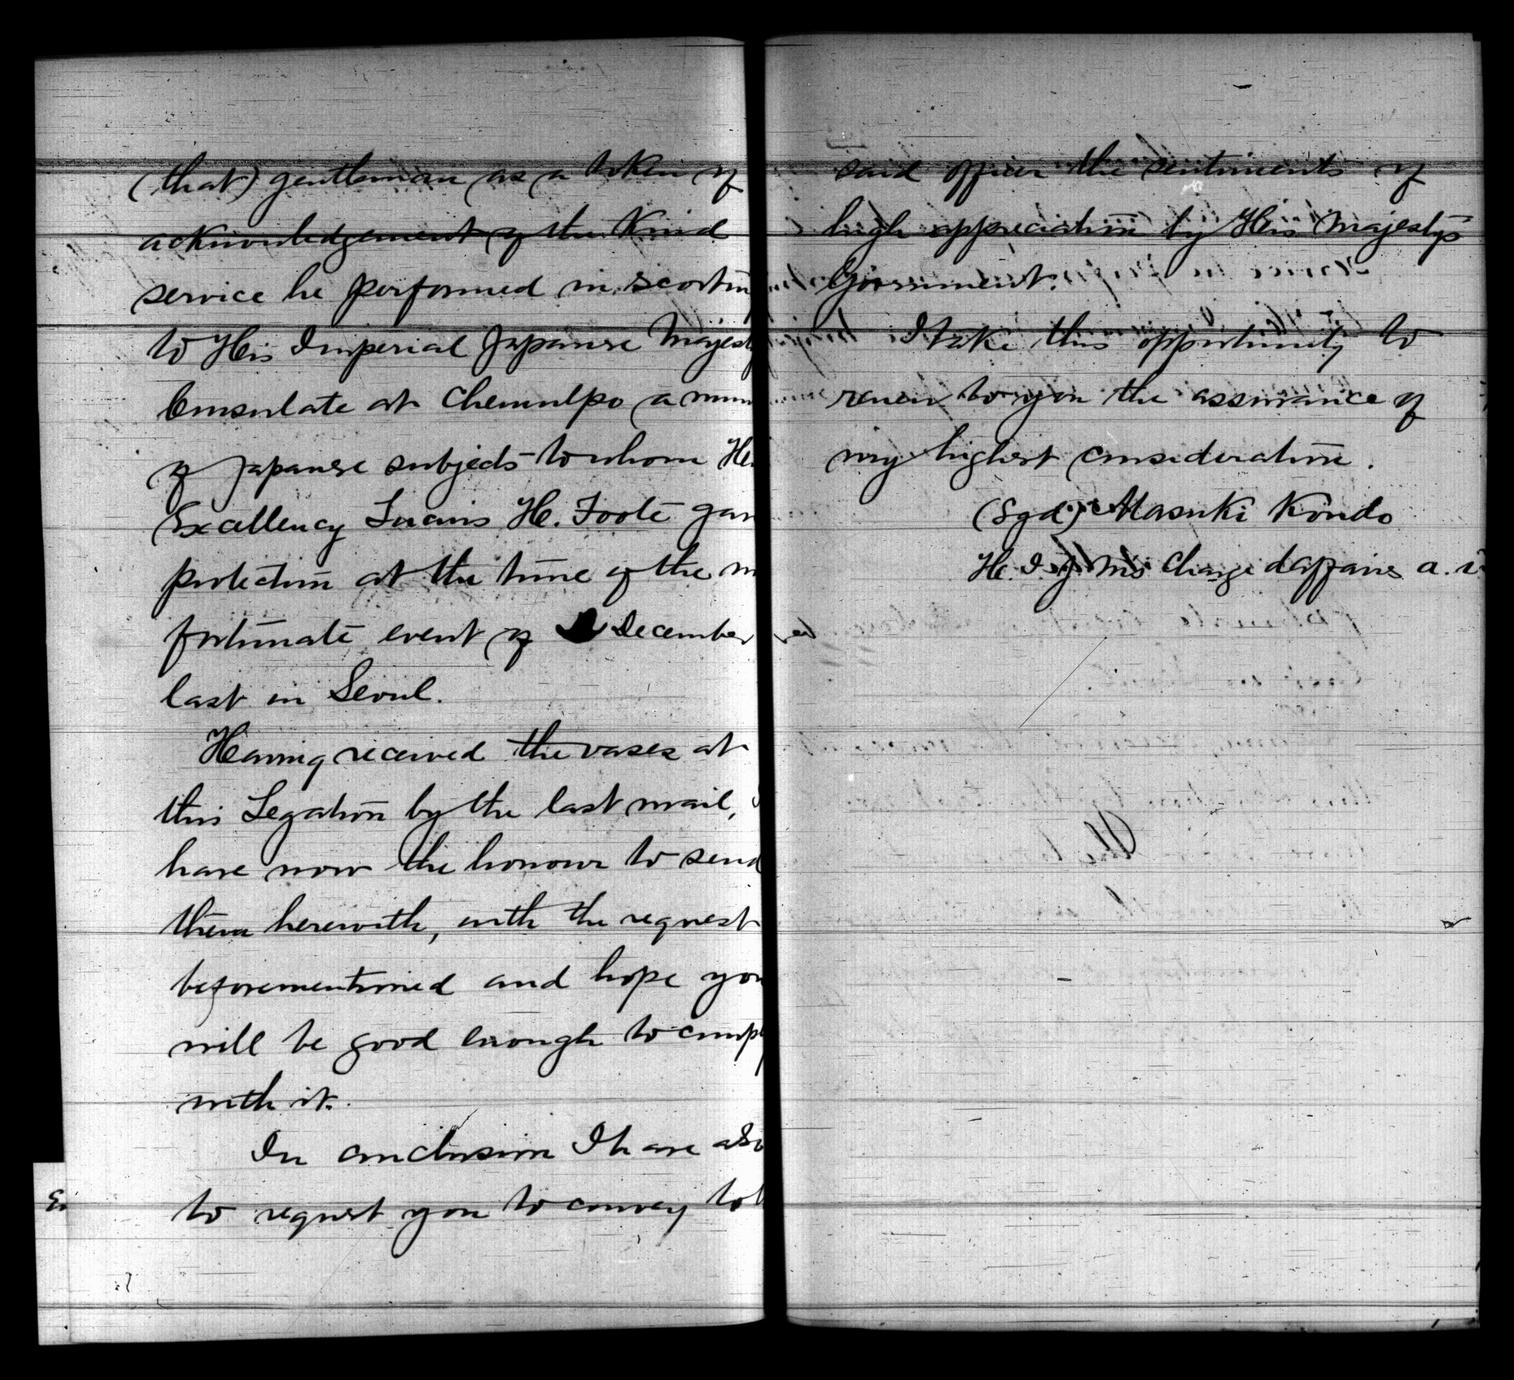 (that) gentleman as a token of
acknowledgement of the Kind
service he performed in scortin
to His Imperial Japanese Majest
Consulate at Chemulpo a num
of Japanese subjects to whom He
Excellency Lucius H. Foote gav
protection at the time of the un
fortunate event of December
last in Seoul.
Having received the vases at
this Legation by the last mail, I
have now the honour to send
them herewith, with the request
beforementioned and hope you
will be good enough to comp
with it.
In conclusion I have also
to request you to convey to
said officer the sentiments of
high appreciation by His Majesty's
Government.
I take this opportunity to
renew to you the assurance of
my highest consideration.
(Sgd) Masuki Kondo
H. I. J. M's Charge d'affaires a. i